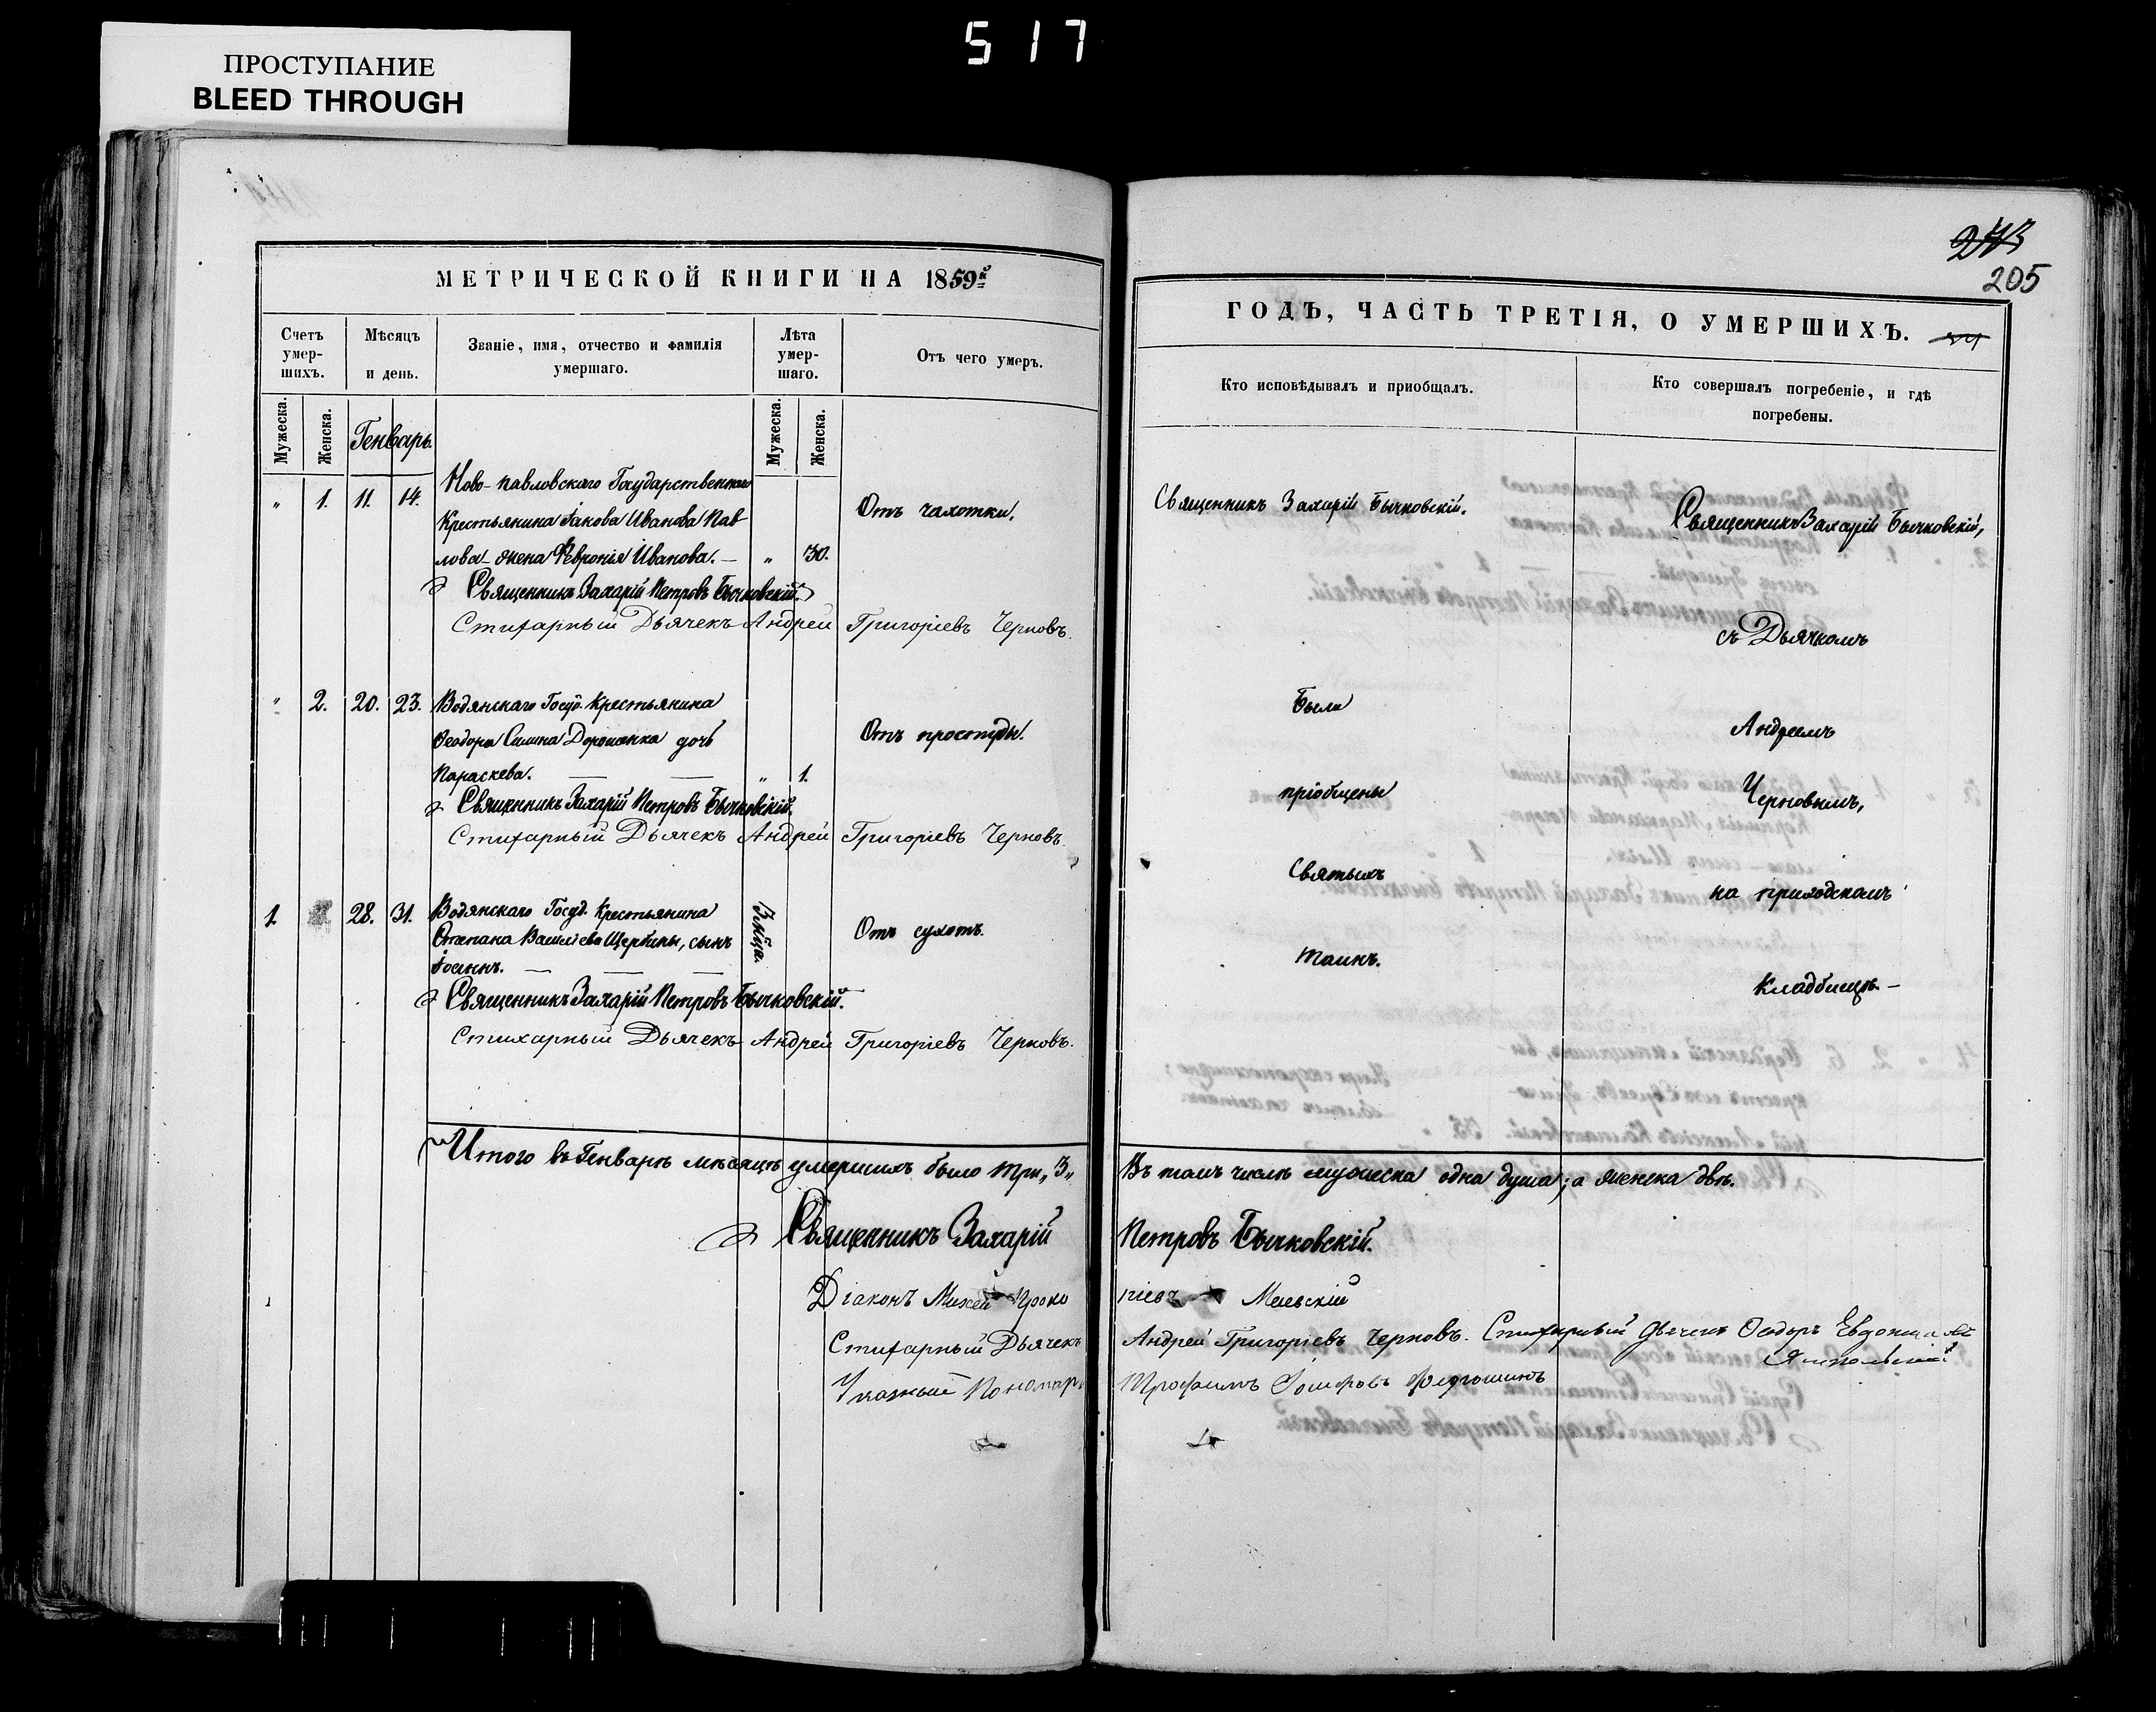 517
ПРОСТУПАНИЕ
BLEED THROUGH
243
205
МЕТРИЧЕСКОЙ КНИГИ НА 1859й
ГОДЪ, ЧАСТЬ ТРЕТІЯ, О УМЕРШИХЪ.
Счетъ умер-шихъ.
Мѣсяцъ и день.
Званіе, имя, отчество и фамилія умершаго.
Лѣта умер-шаго.
Отъ чего умеръ.
Кто исповѣдывалъ и пріобщалъ.
Кто совершалъ погребеніе, и гдѣ погребены.
Мужеска. Женска. Генварь. Мужеска. Женска.
" 1. 11. 14. Ново-павловскаго Государственнаго
Крестьянина Іакова Иванова Пав
лова жена Февронія Иванова. — " 30.
Отъ чахотки.
Священникъ Захарій Петровъ Бычковскій.
Стихарный Дьячекъ Андрей Григоріевъ Черновъ.
" 2. 20. 23. Водянскаго Госуд. Крестьянина
Ѳеодора Савина Дорошенка дочь
Параскева. — — " 1.
Отъ простуды.
Священникъ Захарій Петровъ Бычковскій.
Стихарный Дьячекъ Андрей Григоріевъ Черновъ.
1. 28. 31. Водянскаго Госуд. Крестьянина
Стефана Васильева Щербины, сынъ
Іоаннъ. — — —
Отъ сухотъ.
Священникъ Захарій Петровъ Бычковскій.
Стихарный Дьячекъ Андрей Григоріевъ Черновъ.
Священникъ Захарій Бычковскій.
Были
пріобщены
Святыхъ
Таинъ.
Священникъ Захарій Бычковскій,
съ Дьячкомъ
Андреемъ
Черновымъ,
на приходскомъ
кладбищѣ. —
Итого въ Генварѣ мѣсяцѣ умершихъ было три „3„ Въ томъ числѣ мужеска одна душа; а женска двѣ.
Священникъ Захарій Петровъ Бычковскій.
Діаконъ Михей Прокопіевъ
Стихарный Дьячекъ Андрей Григоріевъ Черновъ. Стихарный Дьячекъ Ѳеодоръ
Указный Пономарь Трофимъ